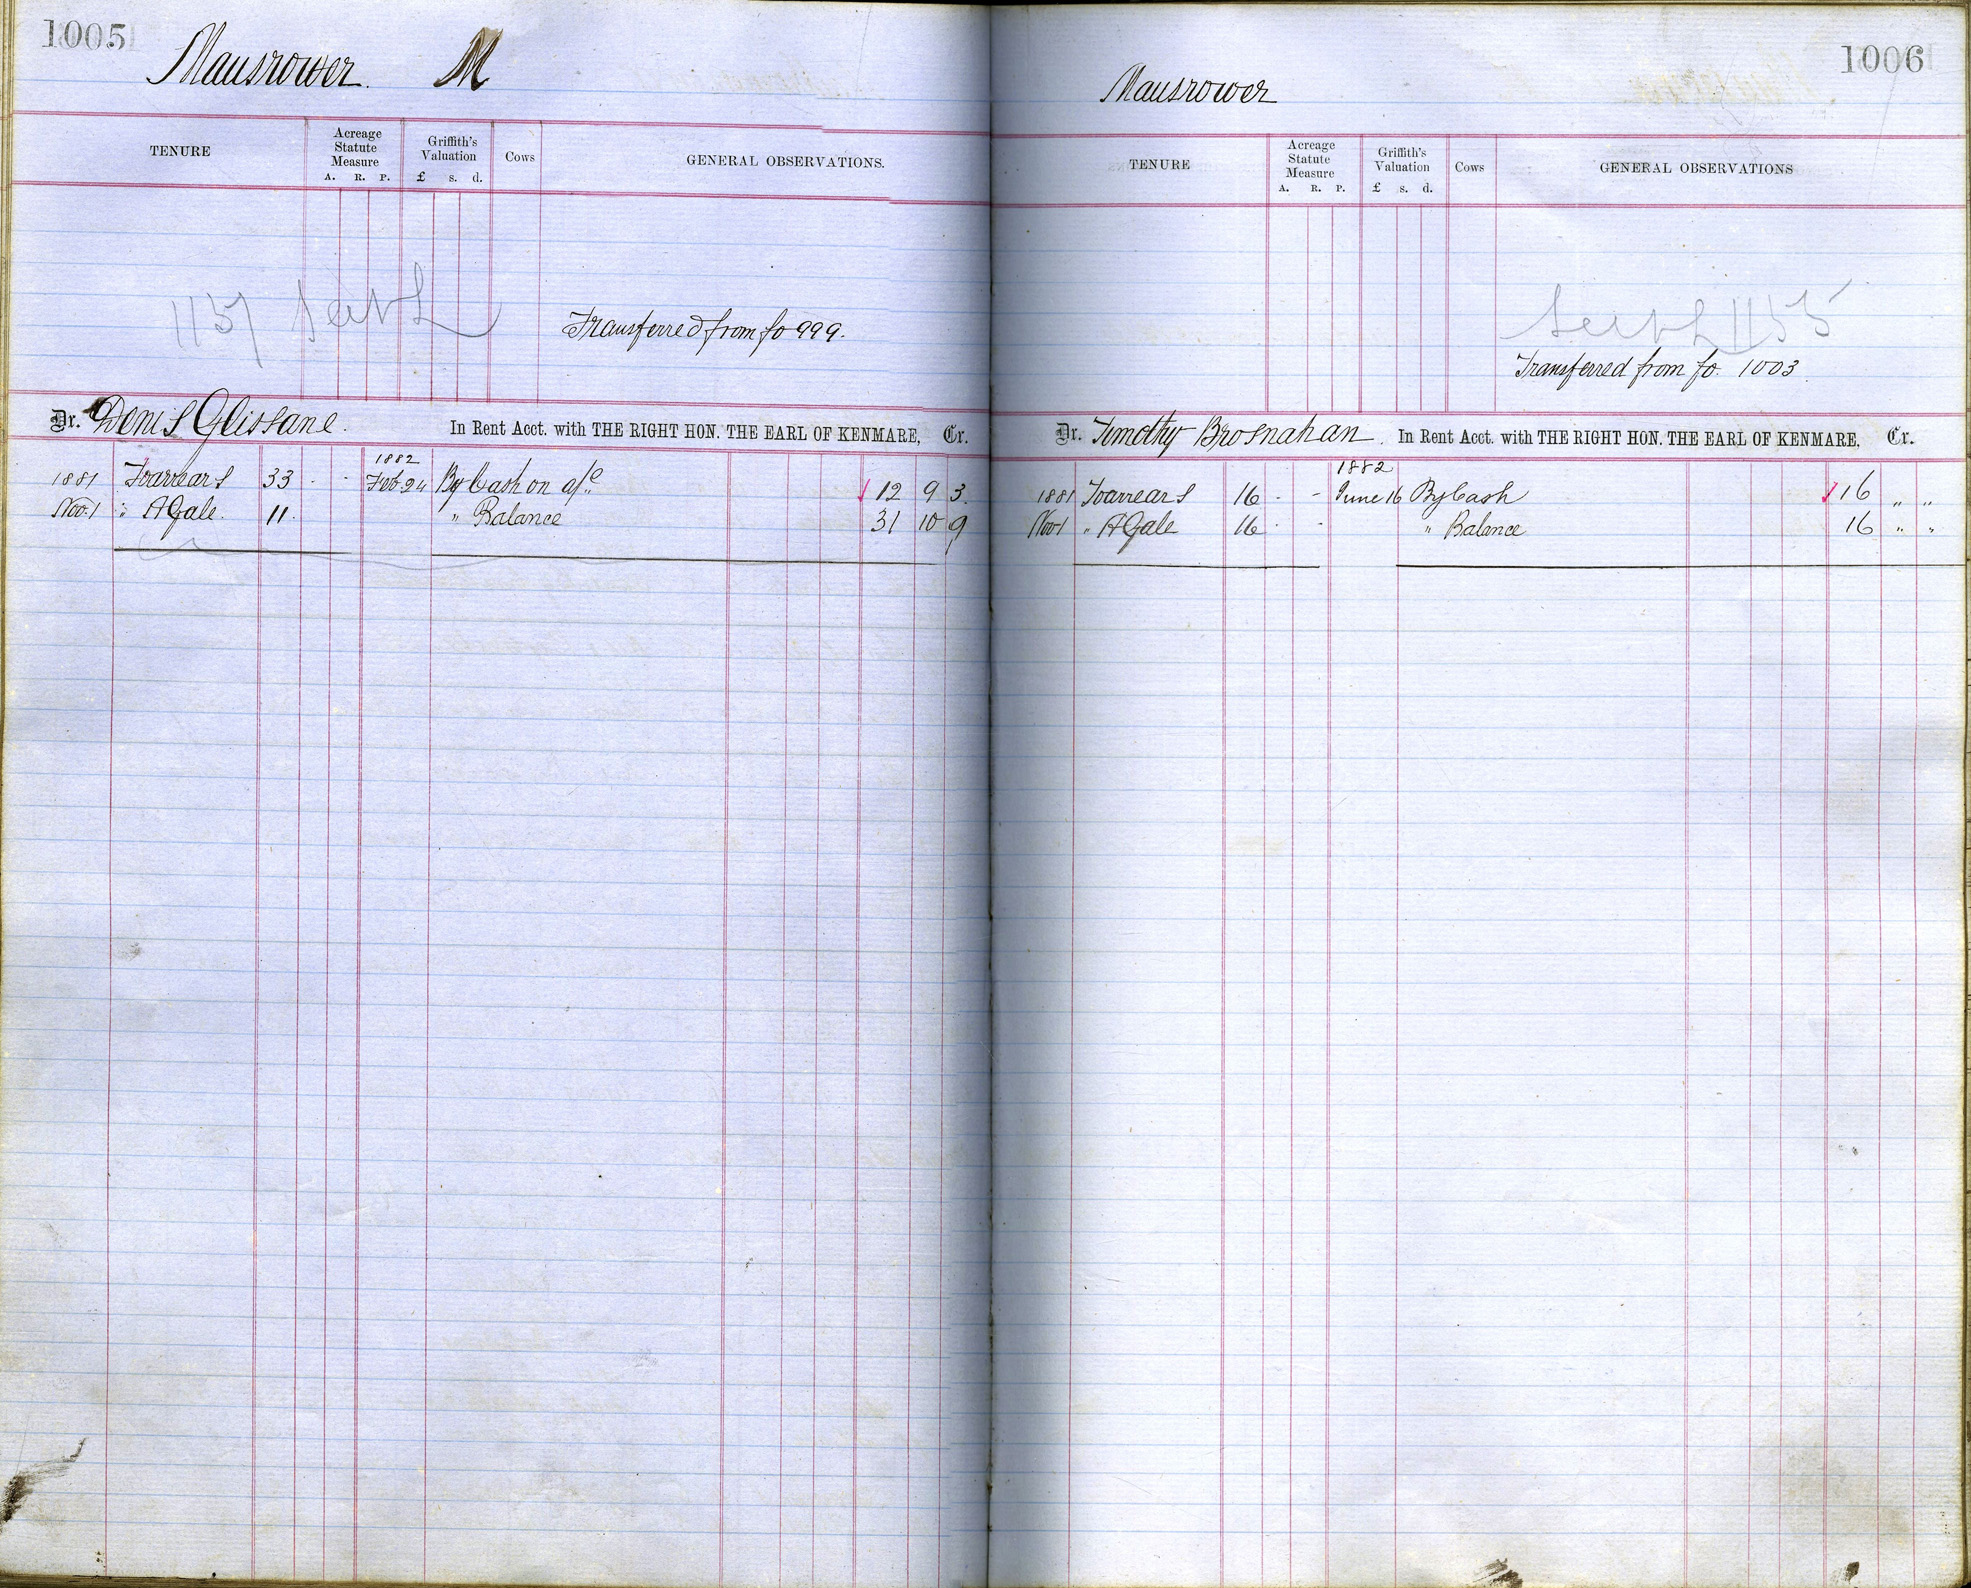 1005
Mausrower. M
TENURE
Acreage Statute Measure
A. R. P.
Griffith's Valuation
£ s. d.
Cows
GENERAL OBSERVATIONS.
1157
Transferred from fo 999.
Dr. Denis Glissane. In Rent Acct. with THE RIGHT HON. THE EARL OF KENMARE, Cr.
1882
1881 To arrears 33 - - Feb 24 By Cash on a/c 12 9 3
Nov. 1 " A Gale. 11 " Balance 31 10 9
1006
Mausrower
TENURE
Acreage Statute Measure
A. R. P.
Griffith's Valuation
£ s. d.
Cows
GENERAL OBSERVATIONS
1155
Transferred from fo. 1003
Dr. Timothy Brosnahan. In Rent Acct. with THE RIGHT HON. THE EARL OF KENMARE, Cr.
1882
1881 To arrears 16 - - June 16 By Cash 16 " "
Nov 1 " A Gale 16 - - " Balance 16 " "